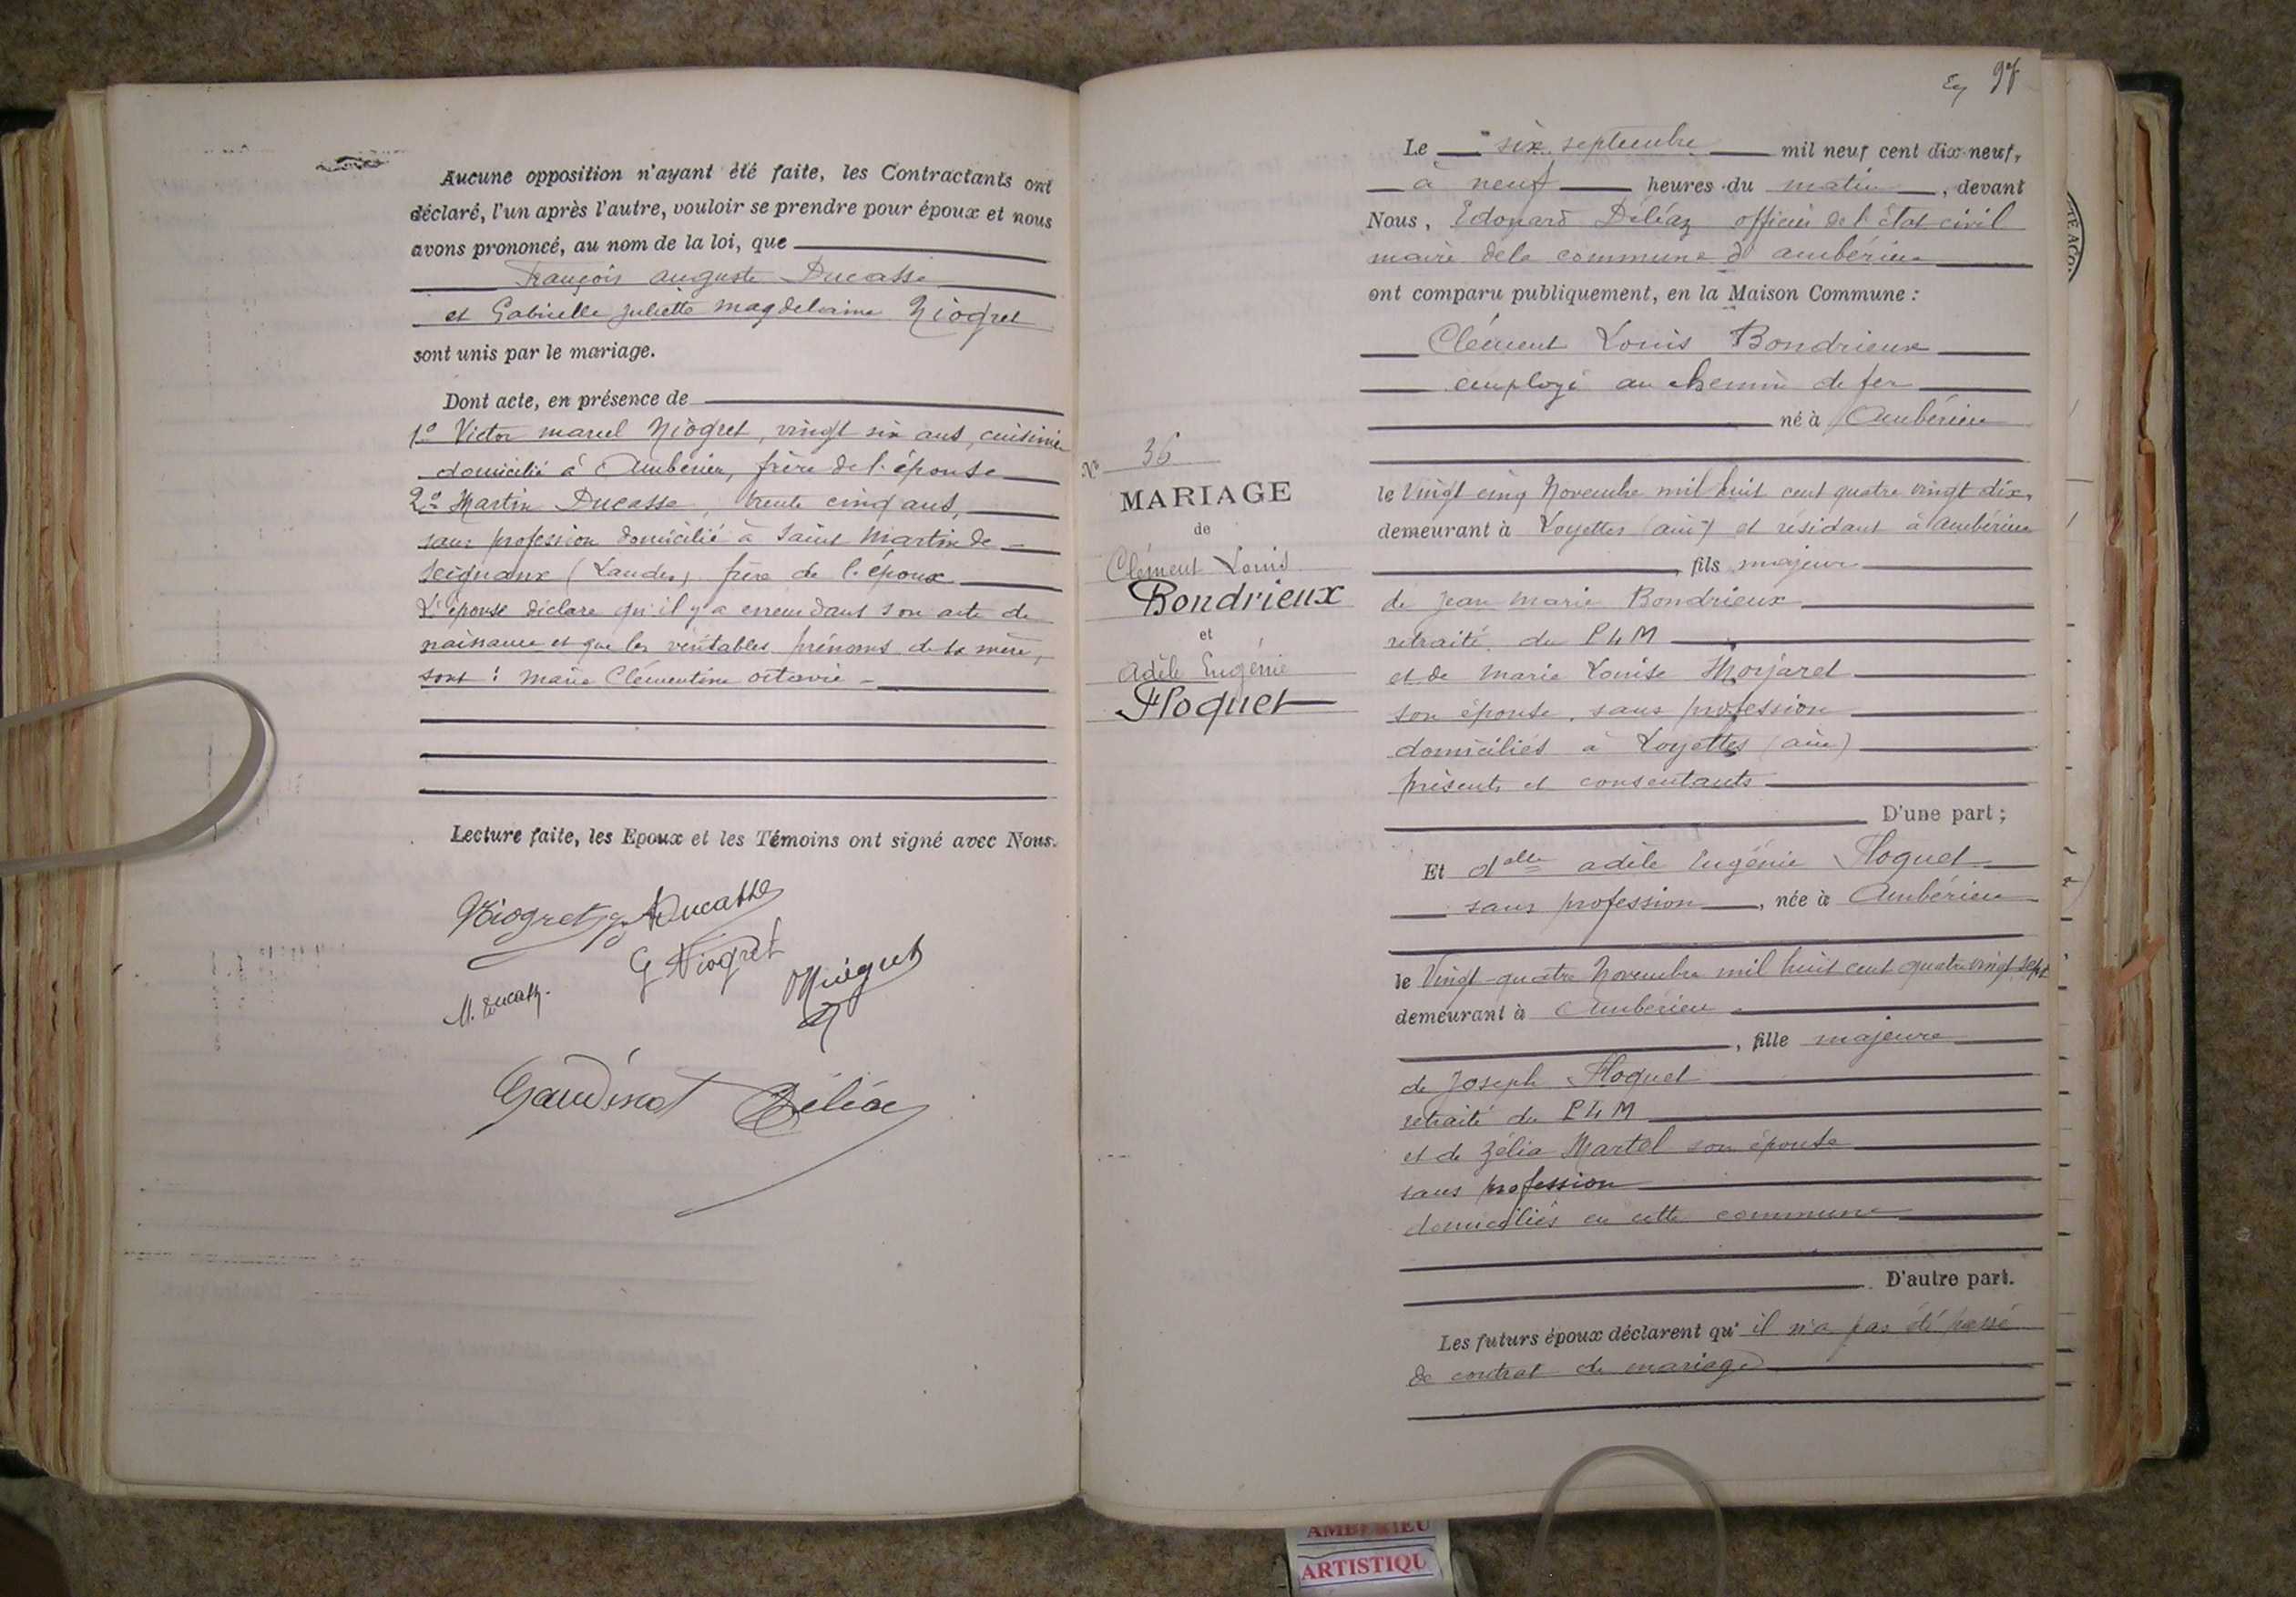 Aucune opposition n'ayant été faite, les Contractants ont
déclaré, l'un après l'autre, vouloir se prendre pour époux et nous
avons prononcé, au nom de la loi, que
François Auguste Ducasse
et Gabrielle Juliette Magdeleine Niogret
sont unis par le mariage.
Dont acte, en présence de
1º Victor Marcel Niogret, vingt six ans, cuisinier
domicilié à Ambérieu, frère de l'épouse
2º Martin Ducasse, trente cinq ans,
sans profession domicilié à Saint Martin de
Seignanx (Landes) frère de l'époux
L'épouse déclare qu'il y a erreur dans son acte de
naissance et que les véritables prénoms de sa mère,
sont : Marie Clémentine Octavie
Lecture faite, les Epoux et les Témoins ont signé avec Nous.
Niogret Ducasse
G Niogret
M. Ducasse
Gaudinot Déléaz
97
Le six septembre mil neuf cent dix-neuf,
à neuf heures du matin, devant
Nous, Edouard Déléaz officier de l'état civil
maire de la commune d'Ambérieu
ont comparu publiquement, en la Maison Commune :
Clément Louis Bondrieux
employé au chemin de fer
né à Ambérieu
le vingt cinq Novembre mil huit cent quatre vingt dix,
demeurant à Loyettes (Ain) et résidant à Ambérieu
fils majeur
de Jean Marie Bondrieux
retraité du PLM
et de Marie Louise Morjaret
son épouse, sans profession
domiciliés à Loyettes (Ain)
présents et consentants
D'une part ;
Et delle Adèle Eugénie Floquet
sans profession, née à Ambérieu
le Vingt-quatre Novembre mil huit cent quatre vingt sept
demeurant à Ambérieu
, fille majeure
de Joseph Floquet
retraité du PLM
et de Zélia Martel son épouse
sans profession
domiciliés en cette commune
D'autre part.
Les futurs époux déclarent qu'il n'a pas été passé
de contrat de mariage
Nº 36
MARIAGE
de
Clément Louis
Bondrieux
et
Adèle Eugénie
Floquet
AMBERIEU
ARTISTIQU